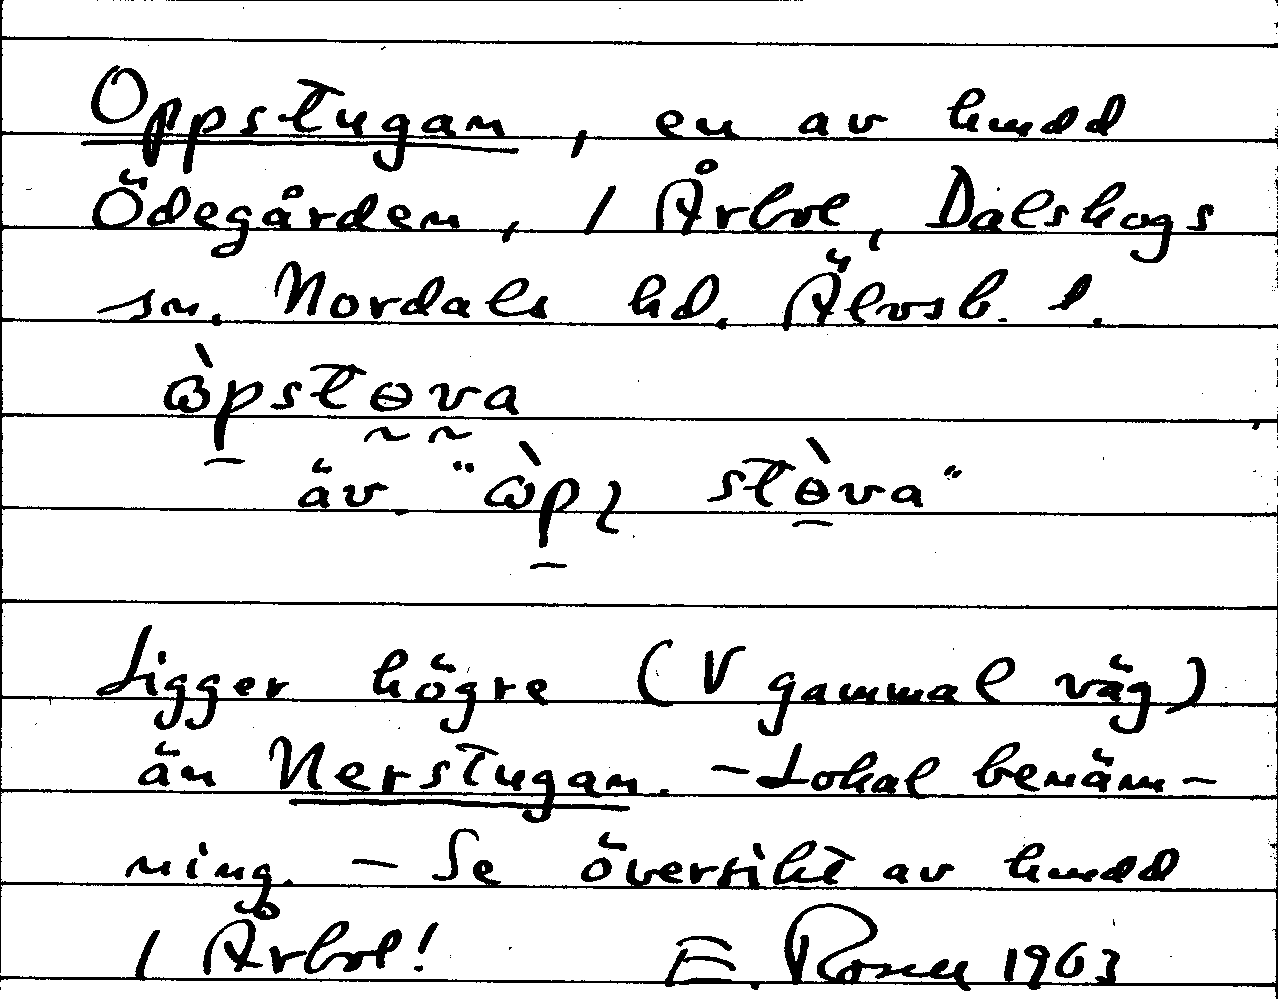 Oppstugan, en av hmdd
Ödegården, 1 Årbol, Dalskogs
sn. Nordals hd. Älvsb. l.
ὼpstɵva
äv. "ὼpɿ stɵ̀va"
Ligger högre (V gammal väg)
än Nerstugan. - Lokal benäm-
ning. - Se översikt av hmdd
1 Årbol! E. Rosell 1963